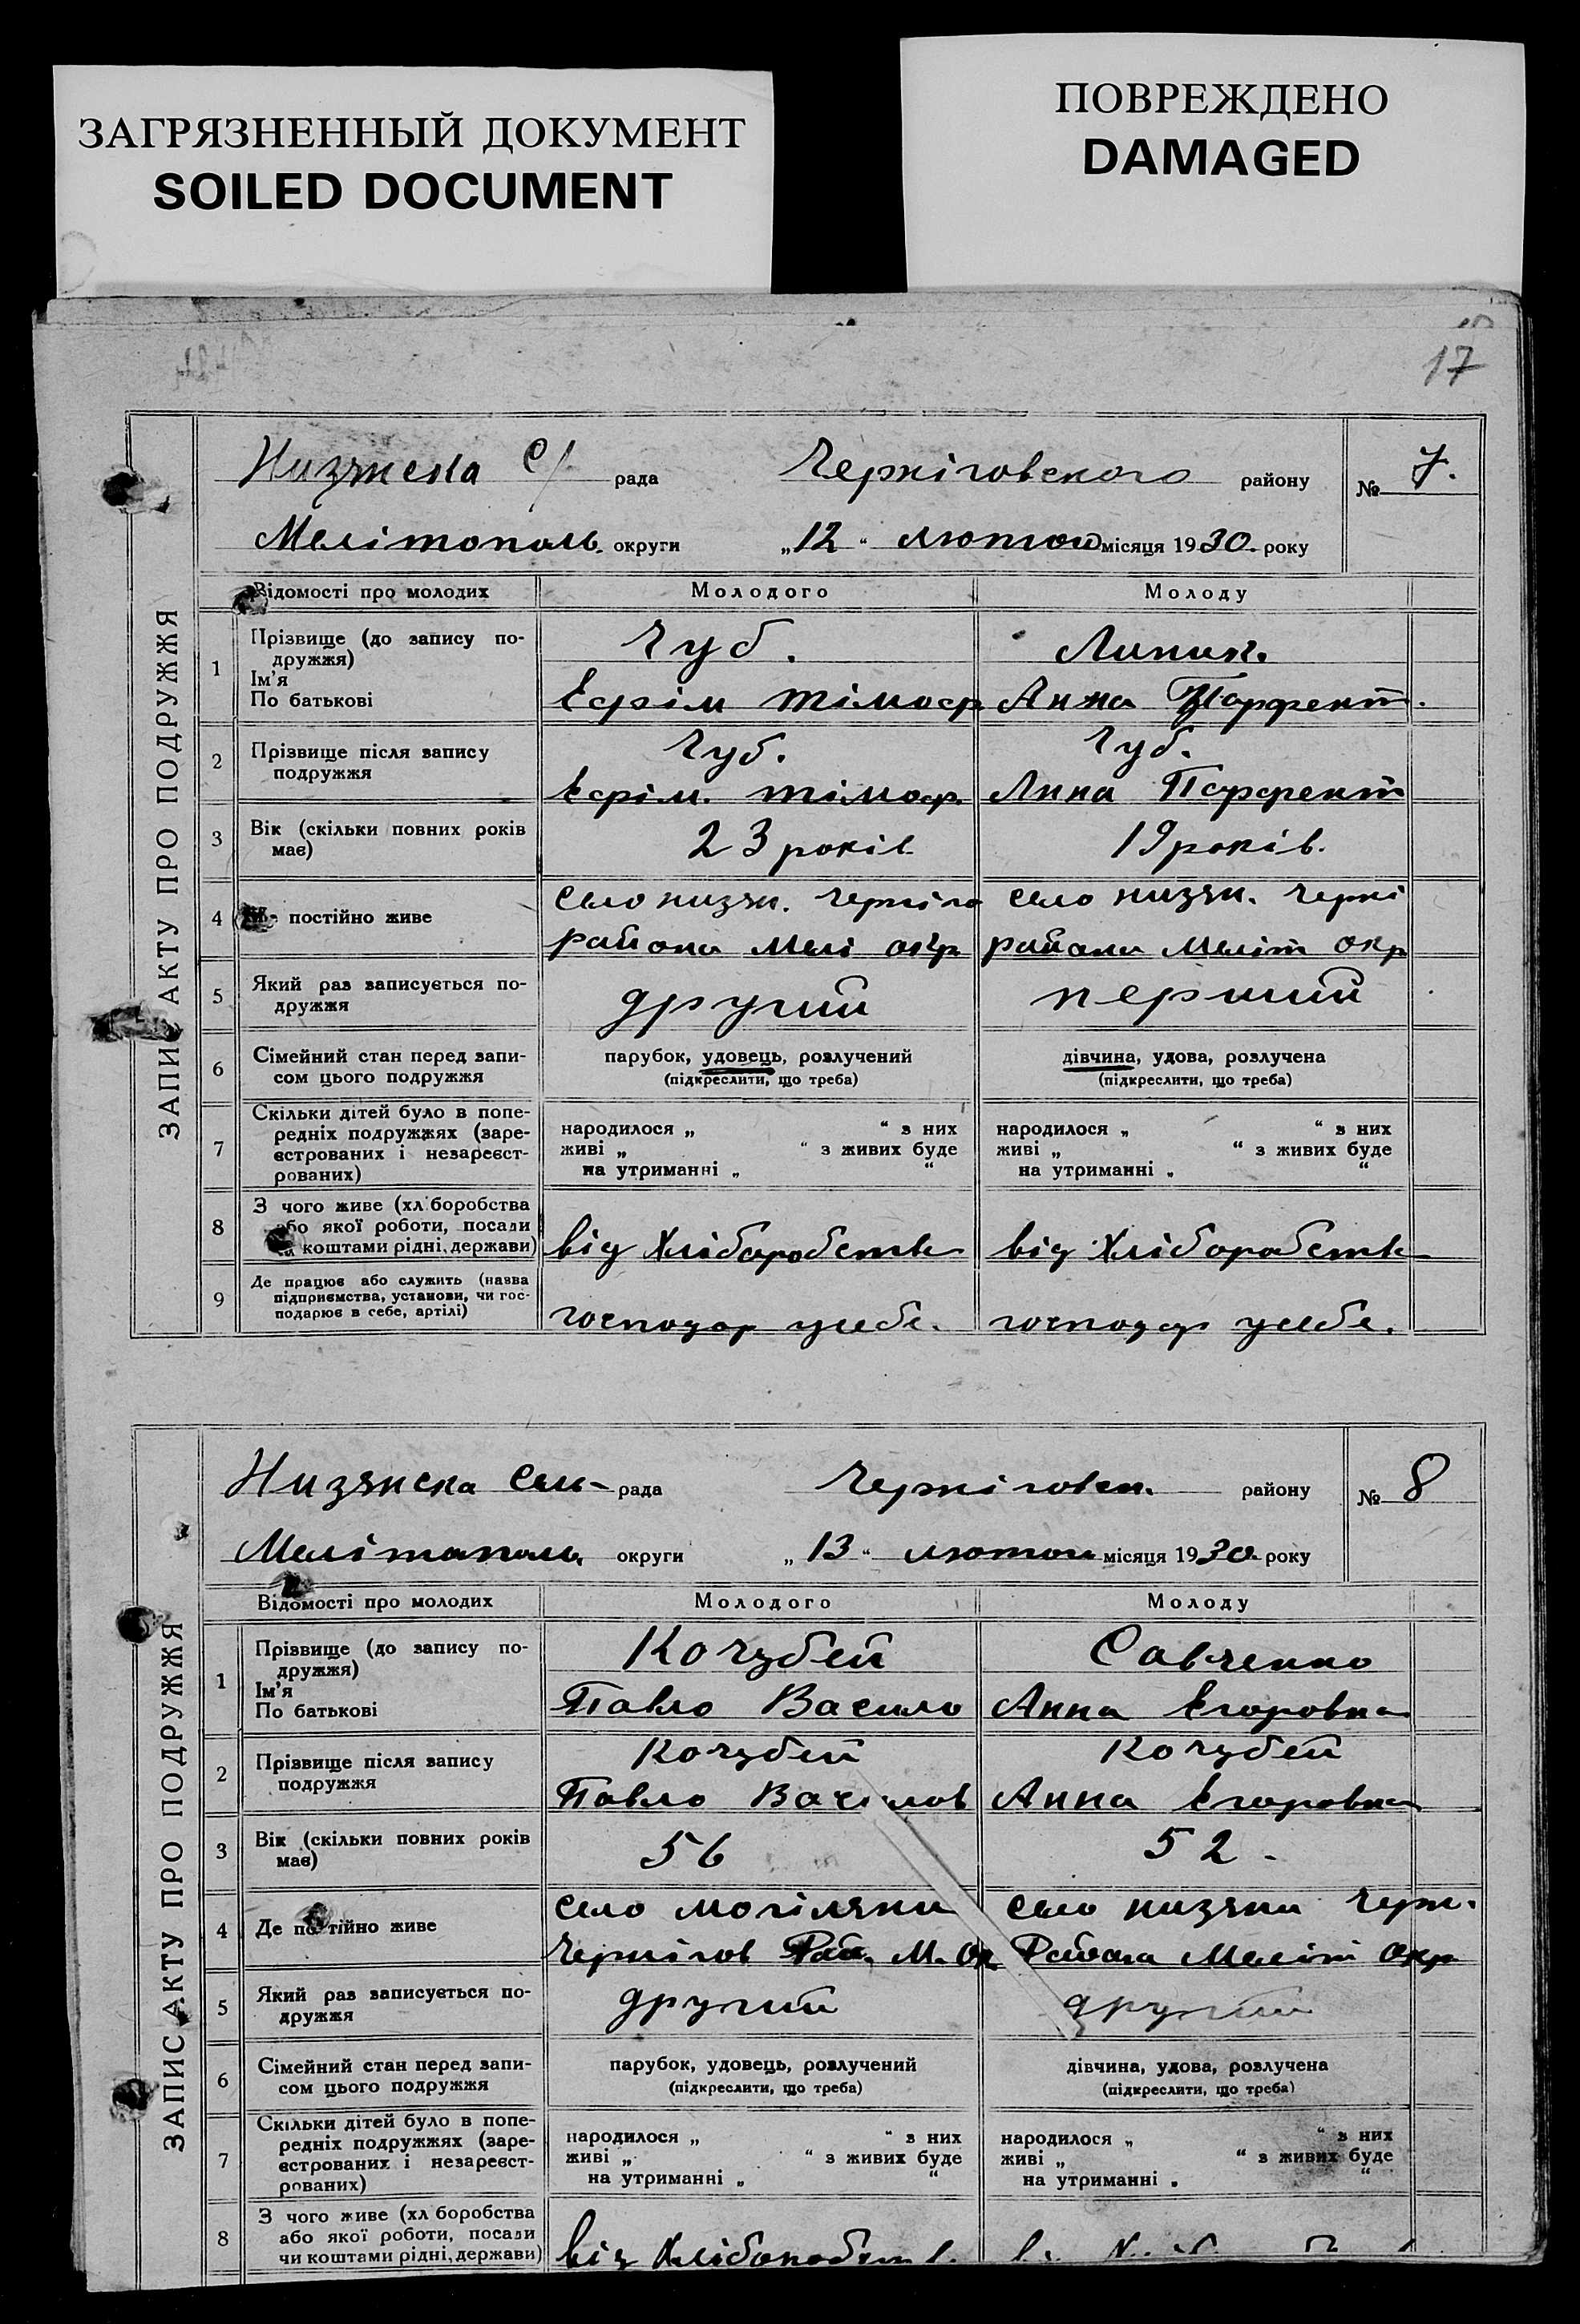 ЗАГРЯЗНЕННЫЙ ДОКУМЕНТ
SOILED DOCUMENT
ПОВРЕЖДЕНО
DAMAGED
17
ЗАПИС АКТУ ПРО ПОДРУЖЖЯ
Низянска С/ рада Чернiговского району № 7.
Мелiтополь. округи „12“ лютого місяця 1930. року
Відомості про молодих Молодого Молоду
1 Прізвище (до запису по-
дружжя)
Ім'я
По батькові
Чуб. Липик.
Єфiм Тiмоф Анна Парфент.
2 Прізвище після запису
подружжя
Чуб. Чуб.
Єфiм. Тiмоф. Анна Парфент
3 Вік (скільки повних років
має)
23 рокiв 19 рокiв.
4 постійно живе
село низян. Чернiго село низян. Чернi
района Мелi окр района Мелiт окр
5 Який раз записується по-
дружжя
другий перший
6 Сімейний стан перед запи-
сом цього подружжя
парубок, удовець, розлучений дівчина, удова, розлучена
(підкреслити, що треба) (підкреслити, що треба)
7 Скільки дітей було в попе-
редніх подружжях (заре-
єстрованих і незареєст-
рованих)
народилося „ “ з них народилося „ “ з них
живі „ “ з живих буде живі „ “ з живих буде
на утриманні „ “ на утриманні „ “
8 З чого живе (хл боробства
або якої роботи, посади
чи коштами рідні, держави)
вiд Хлiборобств вiд Хлiборобств
9 Де працює або служить (назва
підприємства, установи, чи гос-
подарює в себе, артілі)
господар усебе. господар усебе.
ЗАПИС АКТУ ПРО ПОДРУЖЖЯ
Низянска Сель- рада Чернiговск. району № 8
Мелiтополь округи „13“ лютого місяця 1930. року
Відомості про молодих Молодого Молоду
1 Прізвище (до запису по-
дружжя)
Ім'я
По батькові
Кочубей Савченко
Павло Васило Анна Єгоровна
2 Прізвище після запису
подружжя
Кочубей Кочубей
Павло Василов Анна Єгоровна
3 Вік (скільки повних років
має)
56 52.
4 Де постійно живе
село могiляни село низяни Черн.
Чернiгов Рай. М. Ок Района Мелiт Окр
5 Який раз записується по-
дружжя
другий другий
6 Сімейний стан перед запи-
сом цього подружжя
парубок, удовець, розлучений дівчина, удова, розлучена
(підкреслити, що треба) (підкреслити, що треба)
7 Скільки дітей було в попе-
редніх подружжях (заре-
єстрованих і незареєст-
рованих)
народилося „ “ з них народилося „ “ з них
живі „ “ з живих буде живі „ “ з живих буде
на утриманні „ “ на утриманні „ “
8 З чого живе (хл боробства
або якої роботи, посади
чи коштами рідні, держави)
вiд Хлiборобств.